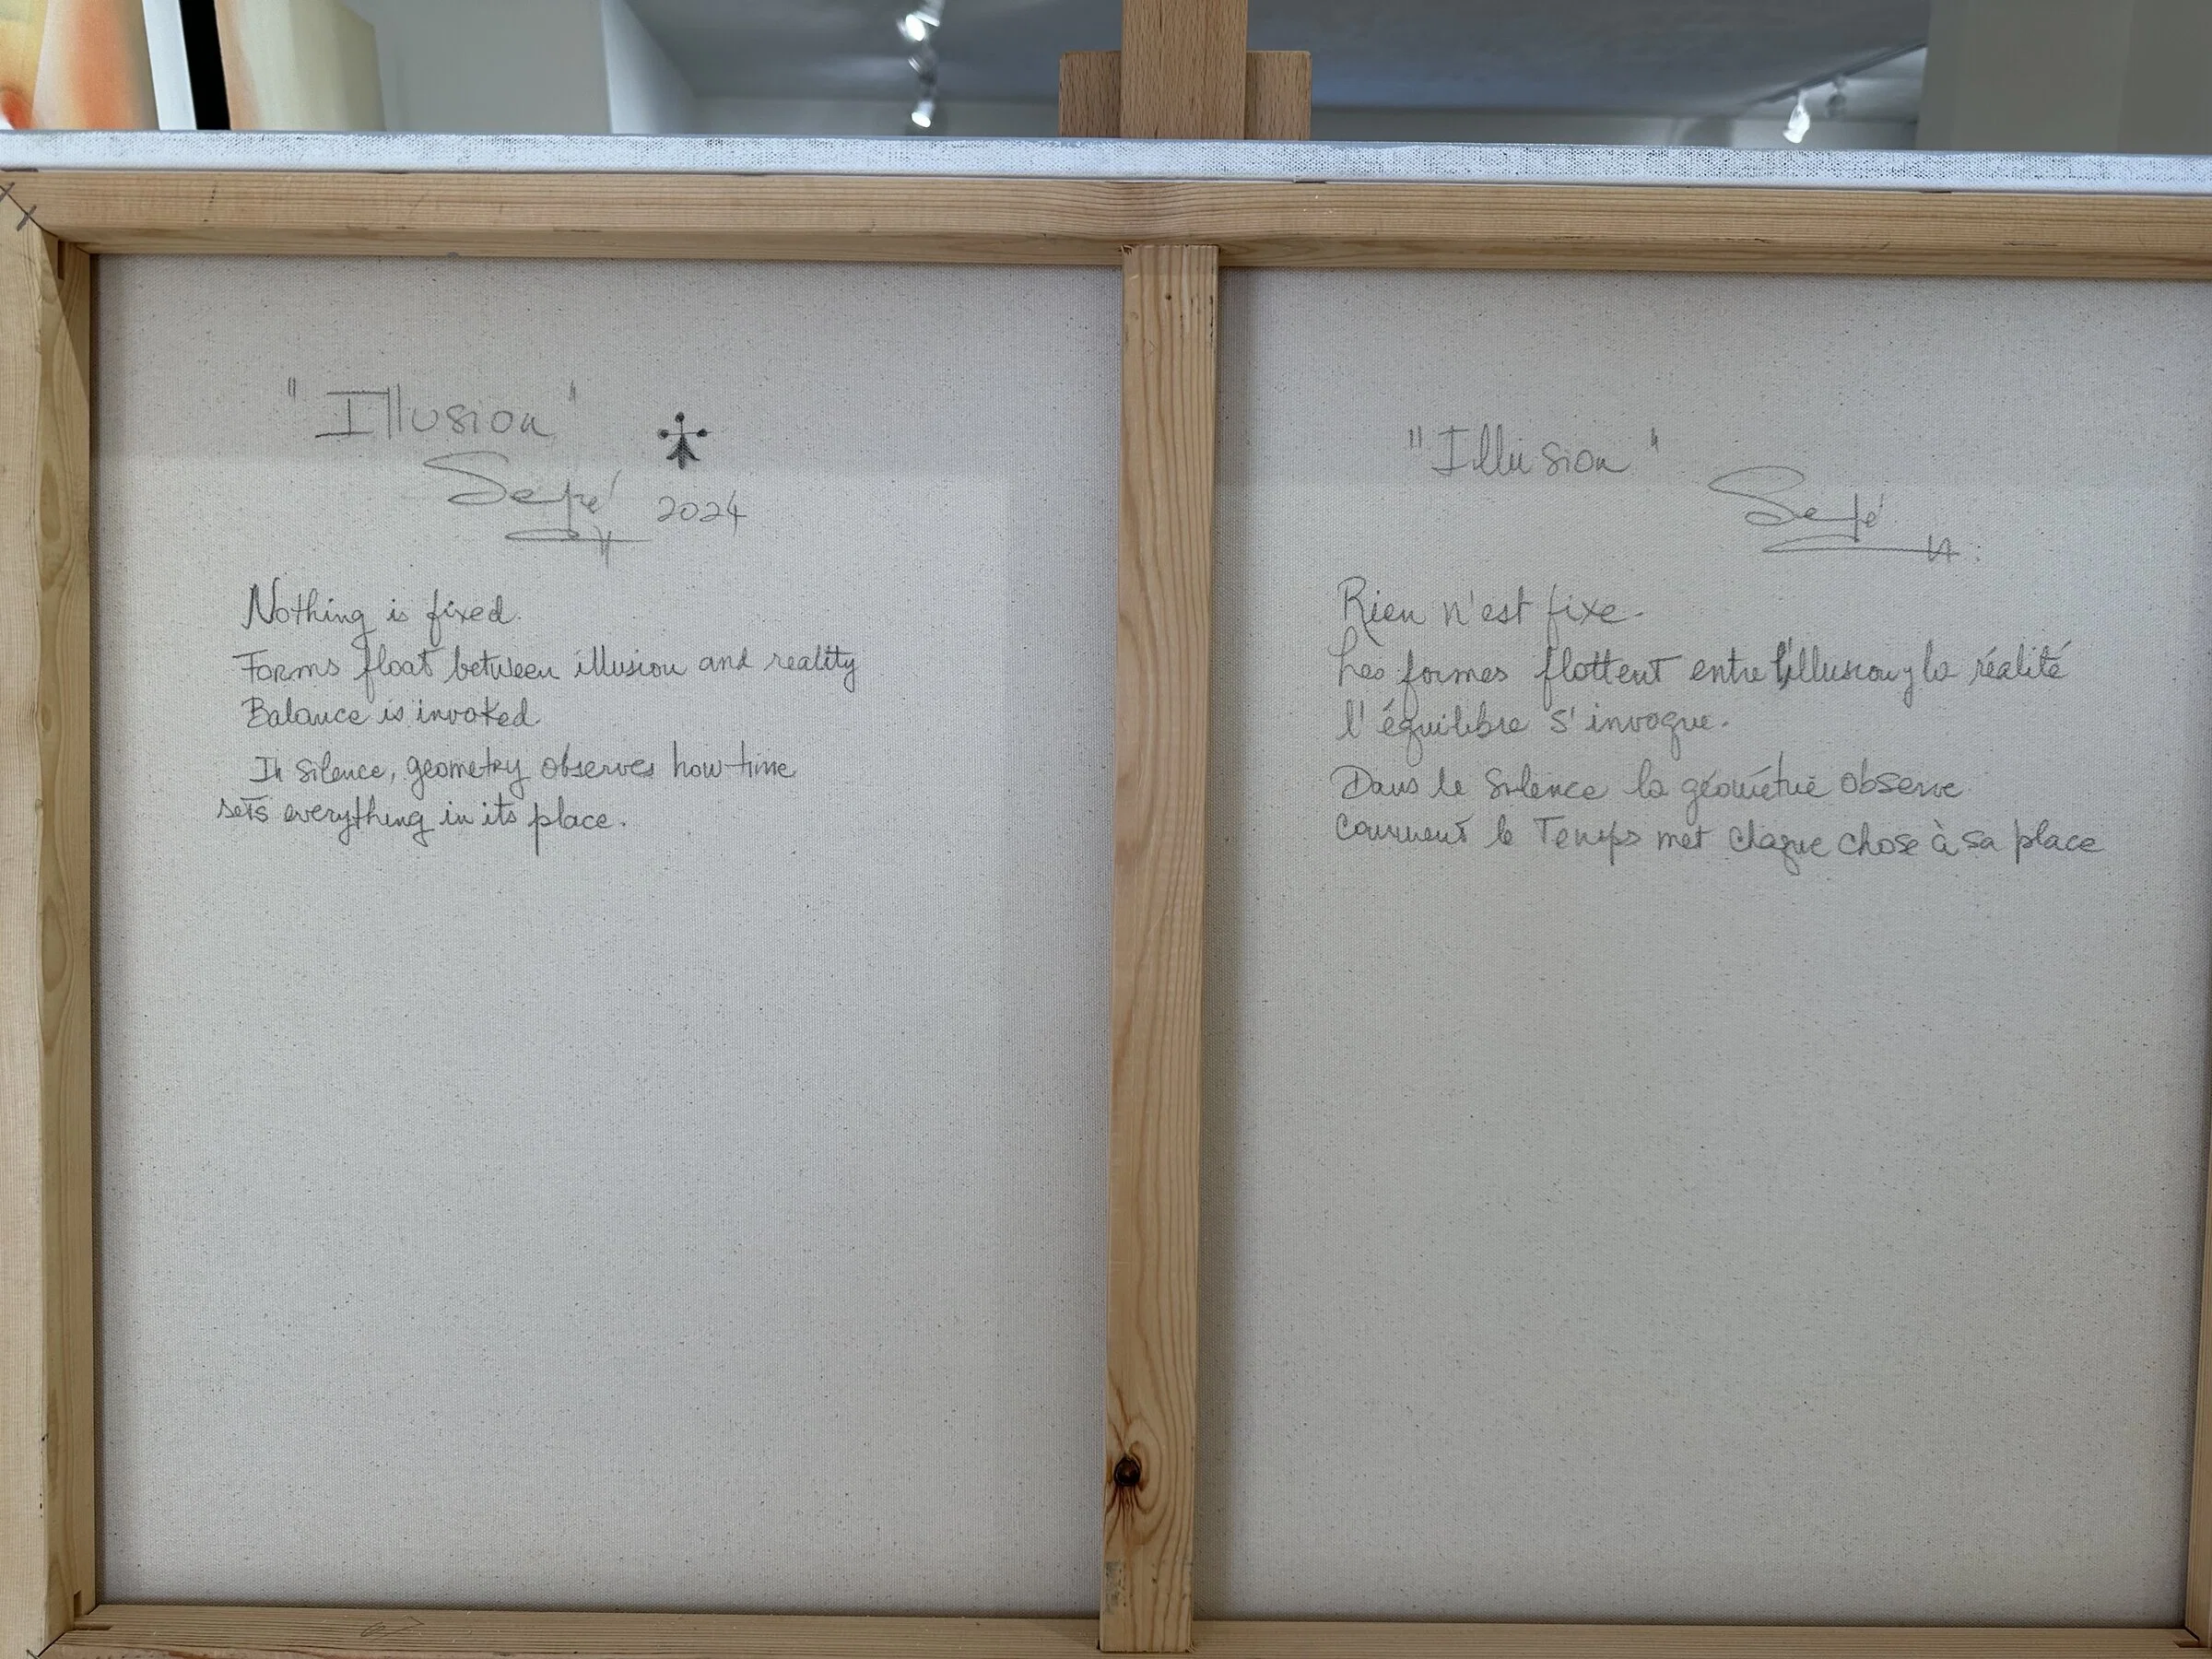 "Illusion"
Sepé
2024
Nothing is fixed.
Forms float between illusion and reality
Balance is invoked
In Silence, geometry observes how time
sets everything in its place.
"Illusion"
Sepé
Rien n'est fixe.
Les formes flottent entre l'illusion y la réalité
l'équilibre s'invoque.
Dans le Silence la géométrie observe
comment le Temps met chaque chose à sa place